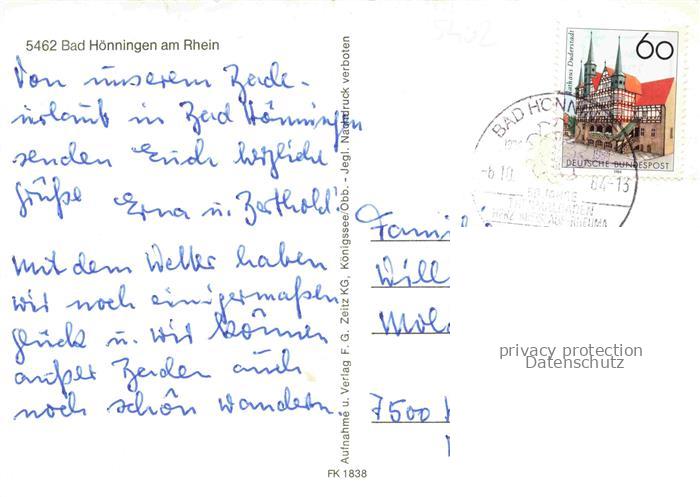 5462 Bad Hönningen am Rhein
Von unserem Bade-
urlaub in Bad Hönningen
senden Euch herzliche
Grüße Erna u. Berthold
Mit dem Wetter haben
wir noch einigermaßen
glück u. wir können
außer Baden auch
noch schön wandern.
Aufnahme u. Verlag F. G. Zeitz KG, Königssee/Obb. - Jegl. Nachdruck verboten
FK 1838
60
Rathaus Duderstadt
DEUTSCHE BUNDESPOST
BAD HÖNN
-6.10. 84-13
50 JAHRE
Fami
Will
Mol
7500
privacy protection
Datenschutz